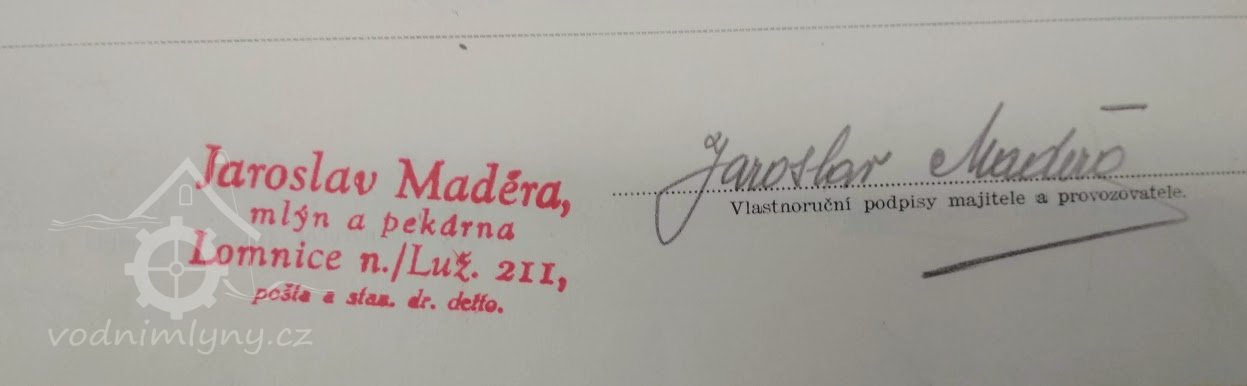 Jaroslav Maděra,
mlýn a pekárna
Lomnice n./Luž. 211,
pošta a stan. dr. detto.
Jaroslav Maděra
Vlastnoruční podpisy majitele a provozovatele.
vodnimlyny.cz